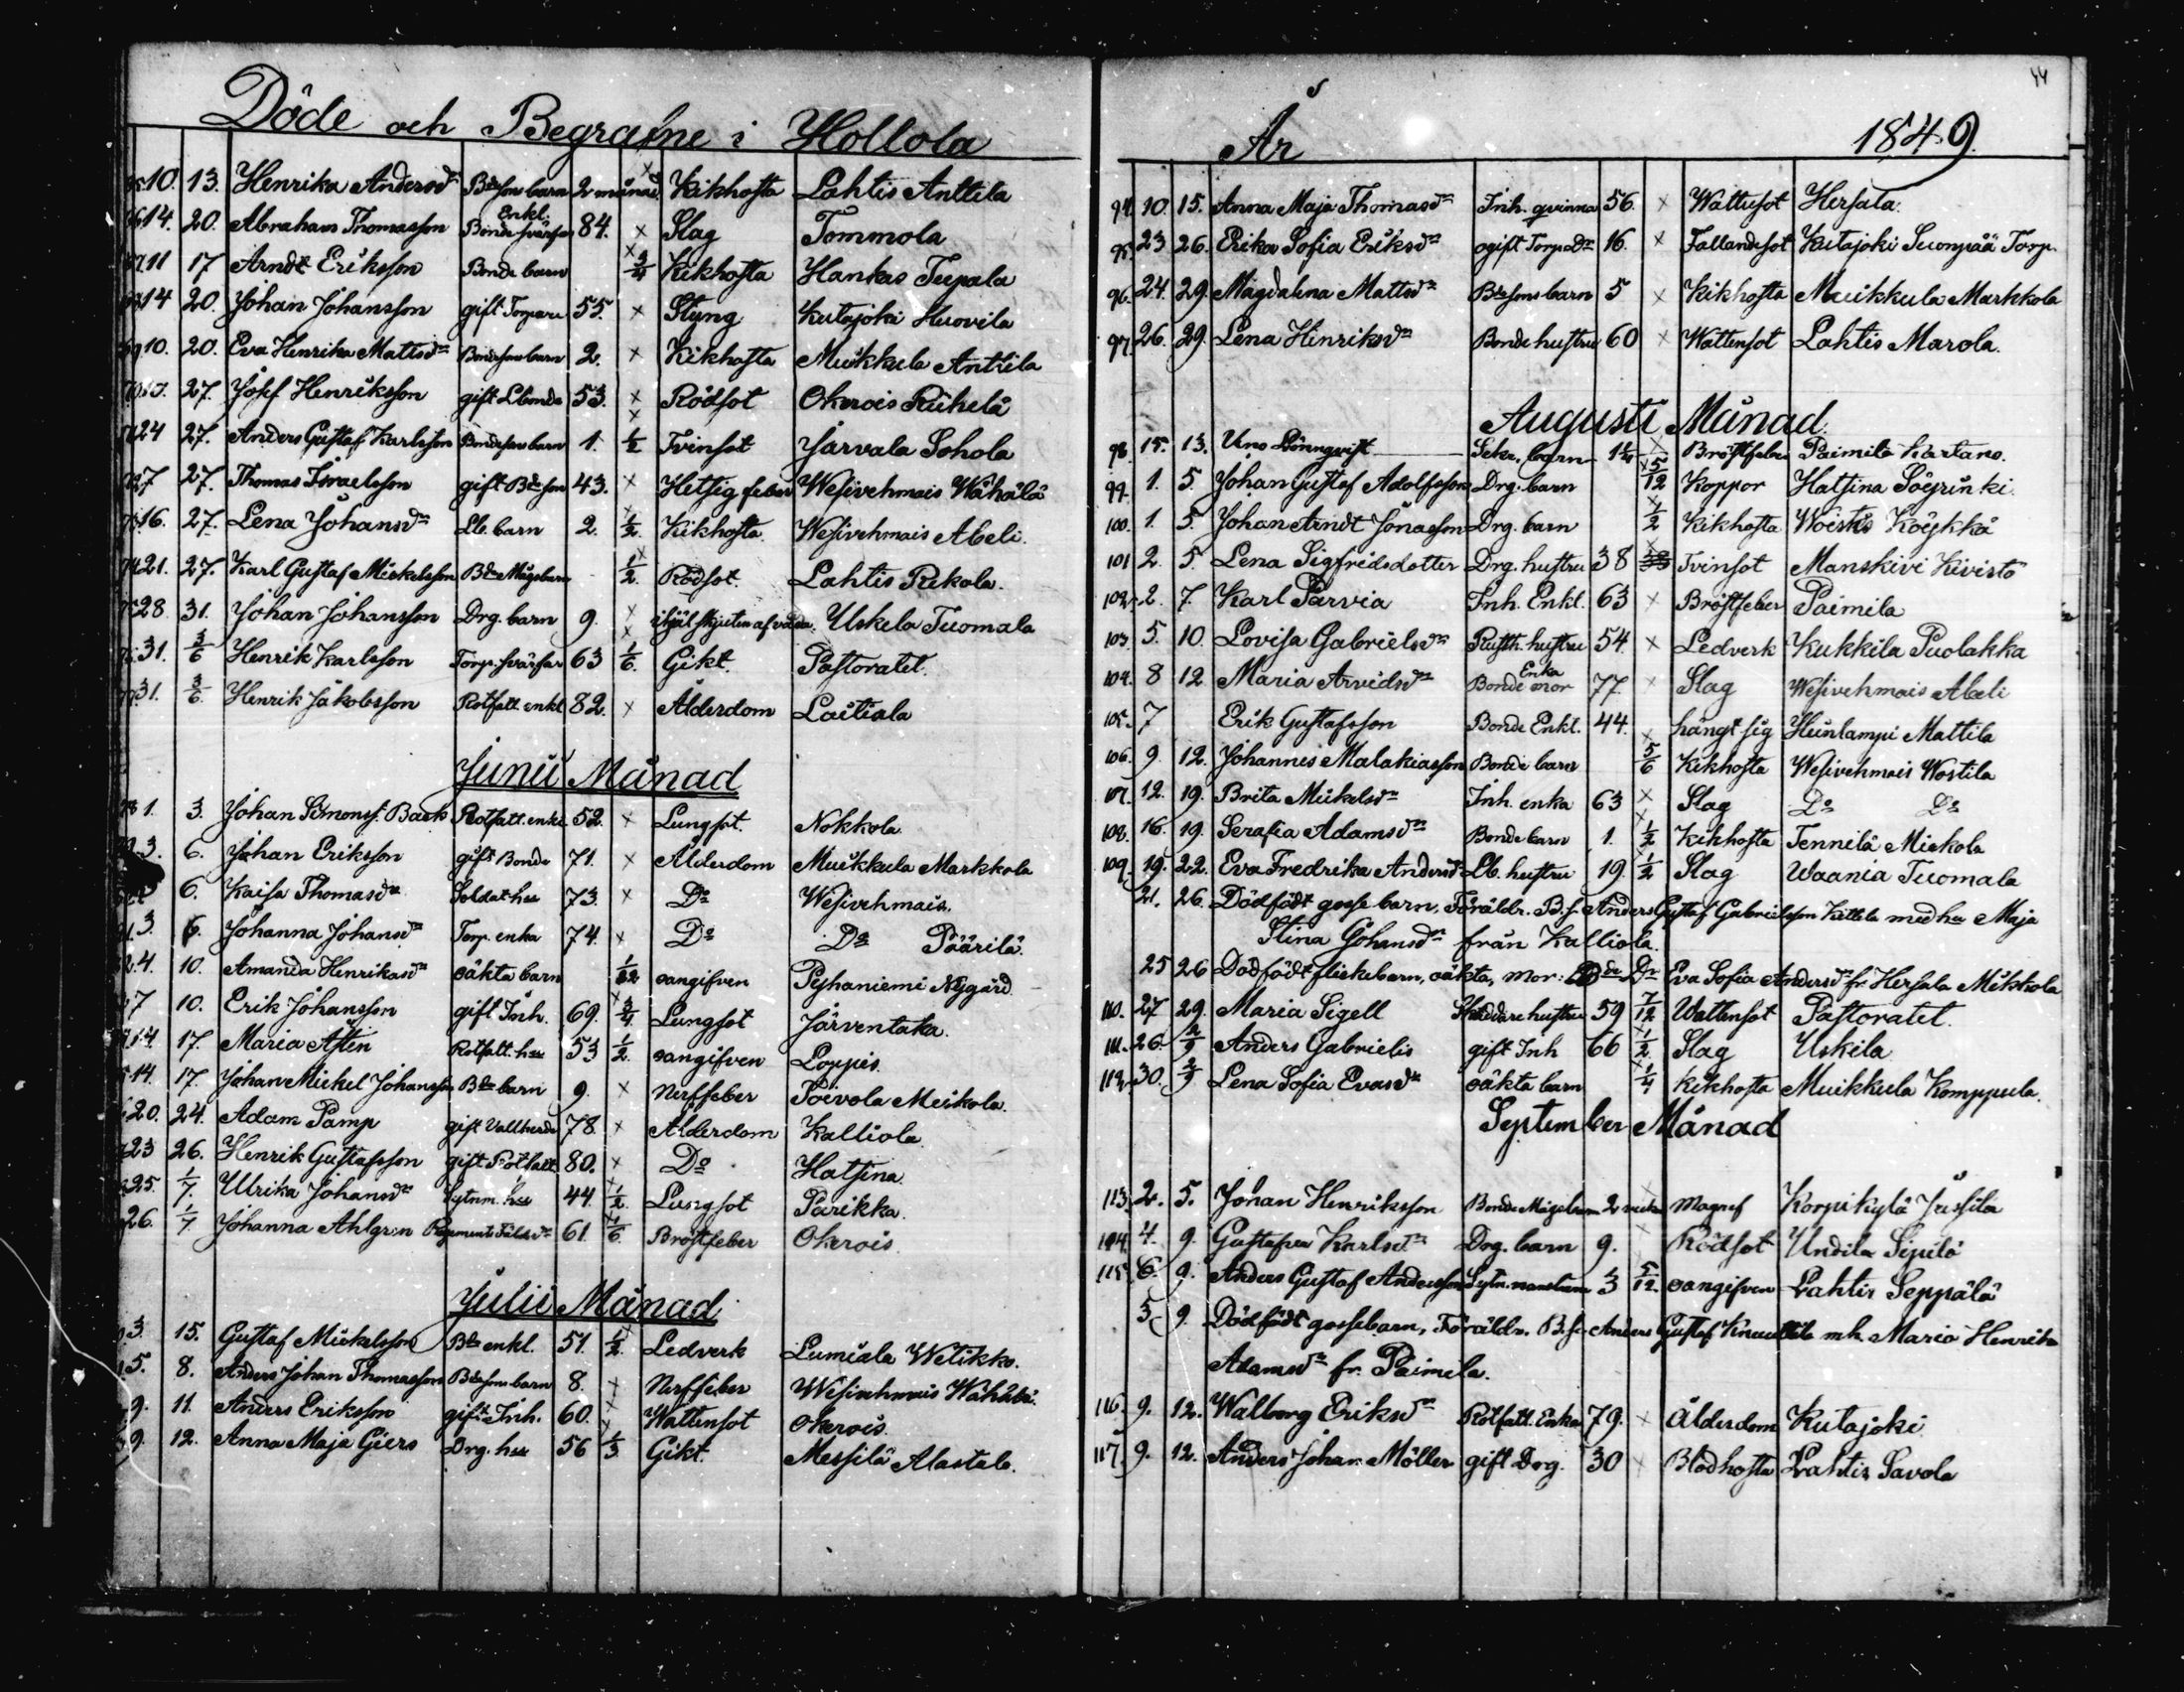 Döde och Begrafne i Hollola
10. 13. Henrika Andersdr Bdesons barn 2 månad. x Kikhosta Lahtis Anttila
14. 20. Abraham Thomasson Enkl. Bonde svärfar 84. x Slag Tommola
11 17 Arndt Eriksson Bonde barn x 3/4 Kikhosta Hankas Teepala
14 20. Johan Johansson gift Torpare 55. x Styng Kutajoki Huovila
10. 20. Eva Henrika Mattsdr Bondesons barn 2. x Kikhosta Muikkula Anttila
27. Josef Henriksson gift Lbonde 53. x Rödsot Okerois Riihelä
24 27. Anders Gustaf Karlsson Bondesons barn 1. x 1/2 Tvinsot Jarvala Sohola
27. Thomas Israelsson gift Bdeson 43. x Hetsig feber Wesivehmais Wähälä
16. 27. Lena Johansdr Lb. barn 2. x 1/2. Kikhosta. Wesivehmais Abeli.
21. 27. Karl Gustaf Mickelsson Bde Mågsbarn x 1/2. Rödsot. Lahtis Rekola.
28 31. Johan Johansson Drg. barn 9. x ihjäl skjuten af våda. Uskela Tuomala
31. 3/6 Henrik Karlsson Torp. svärfar 63 x 1/6. Gikt. Pastoratet.
31. 3/6. Henrik Jakobsson Rotfatt. enkl 82. x Ålderdom Laitiala
Junii Månad
1. 3. Johan Simonss. Back Rotfatt. enkl 52. x Lungsot. Nokkola
3. 6. Johan Eriksson gift Bonde 71. x Ålderdom Muikkula Markkola
6. Kaisa Thomasdr Soldat hu 73. x Do Wesivehmais.
3. 6. Johanna Johansdr Torp. enka 74. x Do Do Päärilä.
4. 10. Amanda Henrikasdr oäkta barn 1/12 oangifven Pyhäniemi Nygård
7 10. Erik Johansson gift Inh. 69. x 3/4. Lungsot Järventaka.
14. 17. Maria Asten Rotfatt. hu 53 1/2. oangifven Loppis.
14. 17. Johan Mickel Johansson Bde barn 9. x Nerffeber Toivola Meikola.
20. 24. Adam Pamp gift Vallherde 78. x Ålderdom Kalliola
23 26. Henrik Gustafsson gift Rotfatt 80. x Do Hatsina.
25. 1/7. Ulrika Johansdr Sytnm. hu 44. x 1/2. Lungsot Parikka.
26. 1/7 Johanna Ahlgren 61. x 1/6. Bröstfeber Okerois.
Julii Månad
3. 15. Gustaf Mickelsson Bde enkl. 51. x 1/2. Ledverk Lumiala Wetikko.
5. 8. Anders Johan Thomasson Bdesons barn 8. x Nerffeber Wesivehmais Wähälä.
9. 11. Anders Eriksson gift Inh. 60. x Wattensot Okerois.
9. 12. Anna Maja Giers Drg. hu 56 x 1/3 Gikt. Messilä Alastalo.
44
År 1849.
94. 10. 15. Anna Maja Thomasdr Inh. qvinna 56. x Wattusot Hersala.
95. 23 26. Erika Sofia Eriksdr ogift Torp.dr 16. x Fallandesot Kutajoki Suonpää Torp.
96. 24. 29. Magdalena Mattsdr Bdesons barn 5 x Kikhosta Muikkula Markkola
97. 26. 29. Lena Hinriksdr Bonde hustru 60 x Wattensot Lahtis Marola.
Augusti Månad.
98. 15. 13. Uno Lönnqvist Sekr. barn 1 1/4 x Bröstfeber Paimila Kartano.
99. 1. 5. Johan Gustaf Adolfsson Drg. barn x 5/12 Koppor Hatsina Söyrinki.
100. 1. 5. Johan Arndt Jonasson Drg. barn x 1/2 Kikhosta Woistis Köykkä
101 2. 5. Lena Sigfridsdotter Drg. hustru 38 x Tvinsot Manskivi Kivistö
102. 2. 7. Karl Parvia Inh. Enkl. 63 x Bröstfeber Paimila
103. 5. 10. Lovisa Gabrielsdr Rusth. hustru 54. x Ledverk Kukkila Puolakka
104. 8 12 Maria Arvidsdr Enka Bonde mor 77. x Slag Wesivehmais Abeli
105. 7 Erik Gustafsson Bonde Enkl. 44. hängt sig Heinlampi Mattila
106. 9 12. Johannes Malakiasson Bonde barn x 5/6 Kikhosta Wesivehmais Wostila
107. 12. 19. Brita Mickelsdr Inh. enka 63 x Slag Do Do
108. 16. 19. Serafia Adamsdr Bonde barn 1. x 1/2 Kikhosta Tennilä Mickola
109. 19. 22. Eva Fredrika Andersdr Lb. hustru 19. x 1/2 Slag Waania Tuomala
21. 26. Dödfödt gosse barn, Föräldr. B.s. Anders Gustaf Gabrielsson Kittila med hu Maja
Stina Johansdr från Kalliola.
25 26 Dödfödt flickebarn, oäkta, mor: Bde Dr Eva Sofia Andersdr fr. Hersala Mikkola
110. 27 29. Maria Sigell Skräddare hustru 59 7/12 Wattensot Pastoratet.
111. 26. 2/9 Anders Gabrielis gift Inh 66 x 1/2. Slag Uskila
112. 30. 2/9 Lena Sofia Evasdr oäkta barn x 1/4 Kikhosta Muikkula Komppula.
September Månad
113. 2. 5. Johan Henriksson Bonde Mågsbarn 2 veckor x Magref Korpikylä Jussila
114. 4. 9. Gustafva Karlsdr Drg. barn 9. x Rödsot Undila Sipilä
115. 6. 9. Anders Gustaf Andersson 3 5/12. oangifven Lahtis Seppälä
3. 9. Dödfödt gossebarn, Föräldr. B.s. Anders Gustaf Knuuttila m.h. Maria Henrika
Adamsdr fr. Paimela.
116. 9. 12. Walborg Eriksdr Rotfatt. Enka 79. x Ålderdom Kutajoki
117. 9. 12. Anders Johan Möller gift Drg. 30 x Blodhosta Lahtis Savola